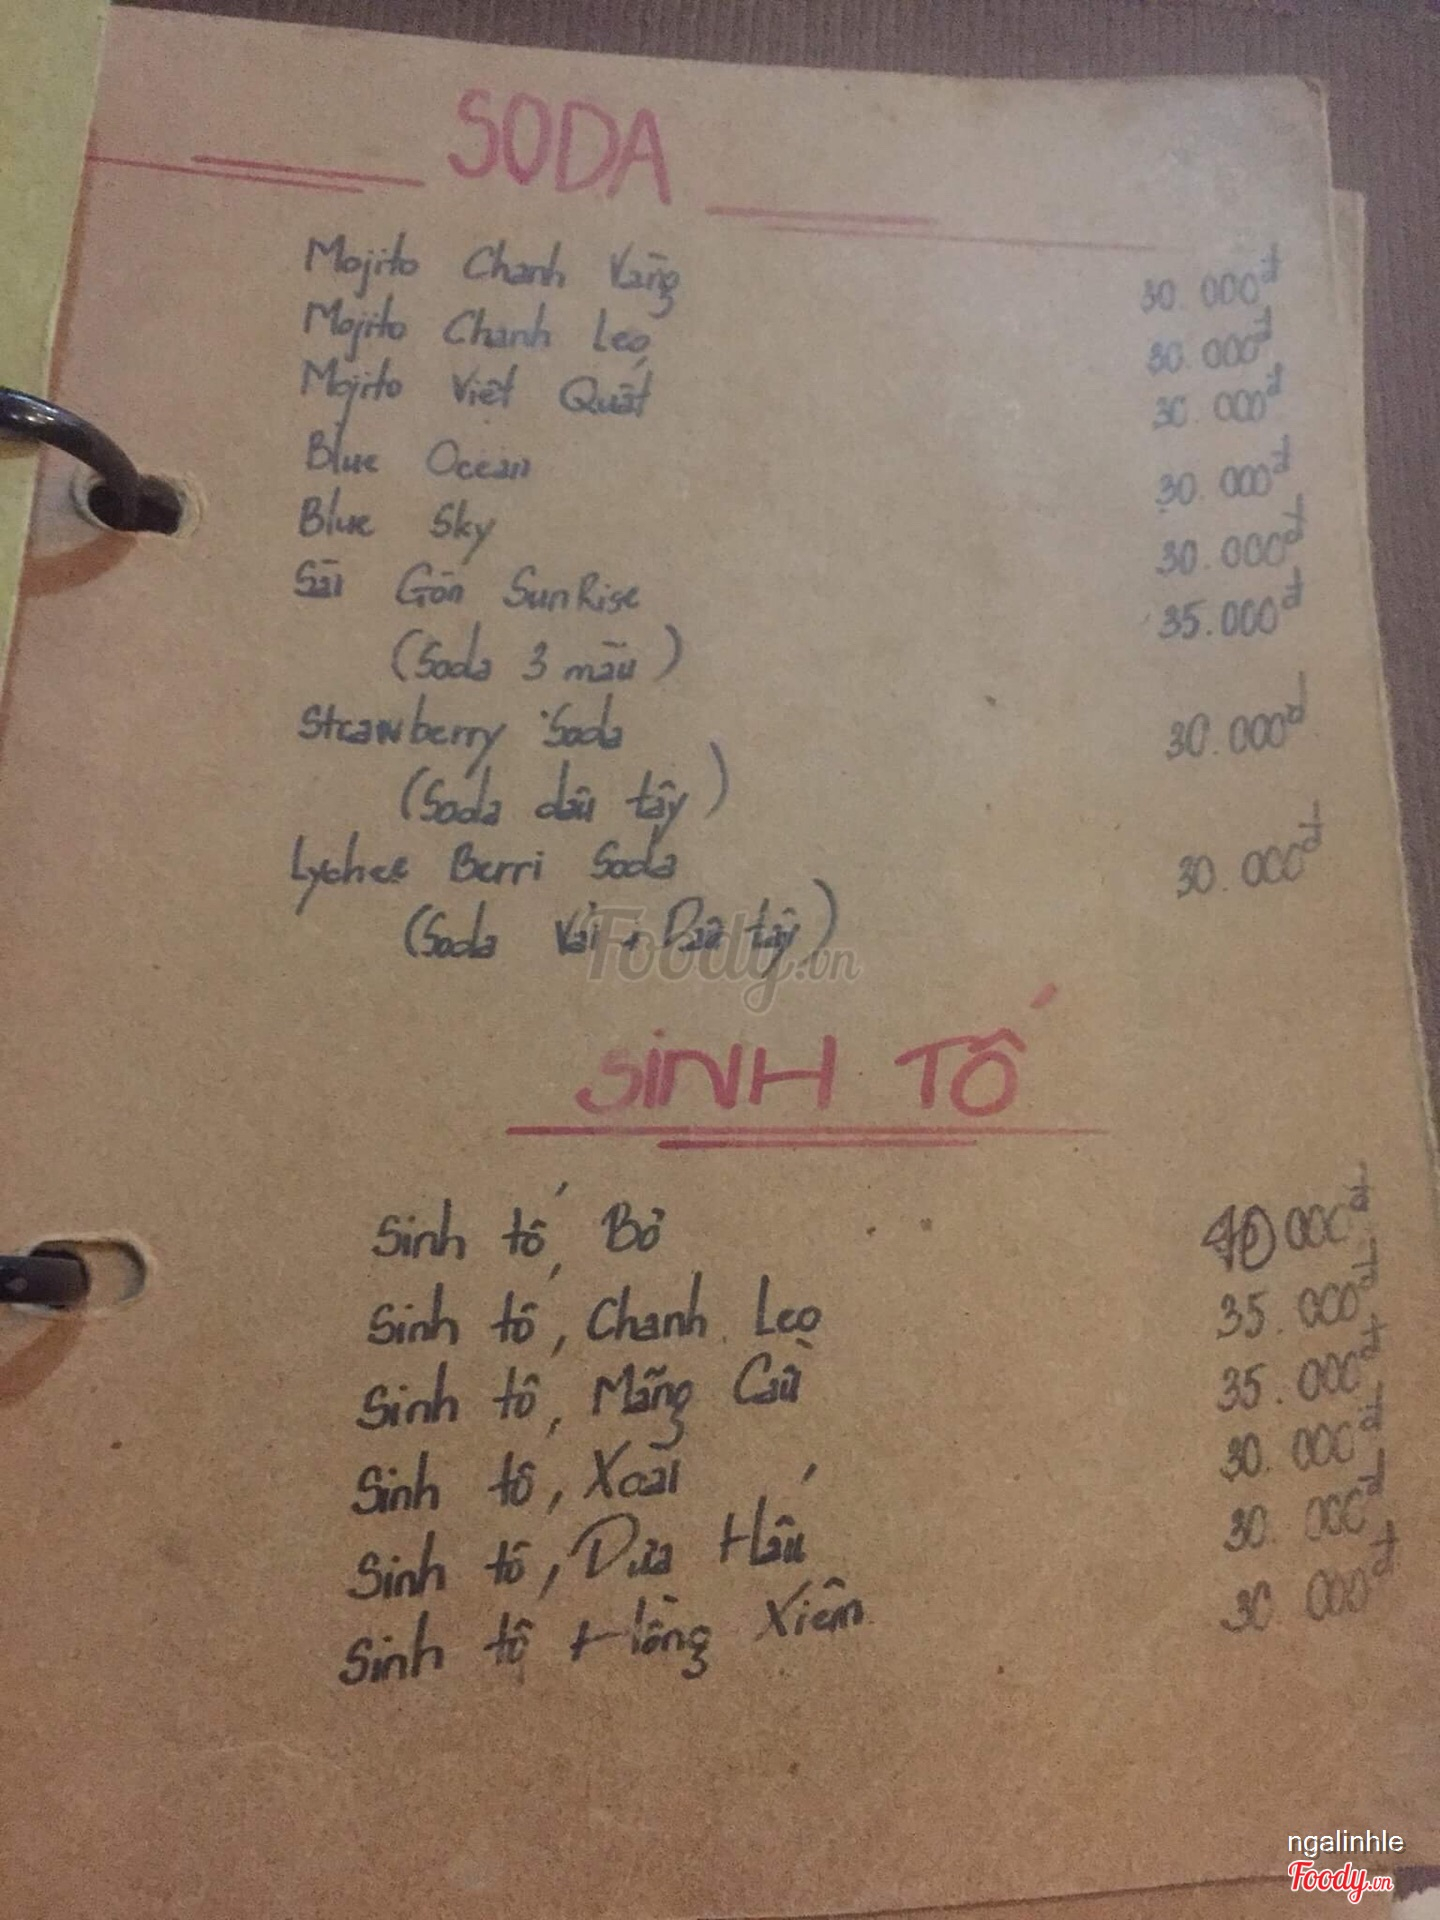 SODA
Mojito Chanh Vàng 30.000đ
Mojito Chanh Leo 30.000đ
Mojito Việt Quất 30.000đ
Blue Ocean 30.000đ
Blue Sky 30.000đ
Sài Gòn SunRise 35.000đ
(Soda 3 màu)
Strawberry Soda 30.000đ
(Soda dâu tây)
Lychee Berri Soda 30.000đ
(Soda Vải + Dâu tây)
Foody.vn
SINH TỐ
Sinh tố Bơ 40 000đ
Sinh tố, Chanh Leo 35.000đ
Sinh tố, Mãng Cầu 35.000đ
Sinh tố, Xoài 30.000đ
Sinh tố, Dưa Hấu 30.000đ
Sinh tố Hồng Xiêm 30 000đ
ngalinhle
Foody.vn